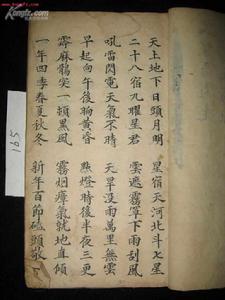 天上地下日頭月明
星宿天河北斗七星
二十八宿九曜星君
雲遮霧罩下雨刮風
吼雷閃電天氣不時
天旱没雨萬里無雲
早起向午後晌黄昏
點燈時後半夜三更
霹靂鶻突一頓黒風
霧烟瘴氣就地直傾
一年四季春夏秋冬
新年百節磕頭敬
165